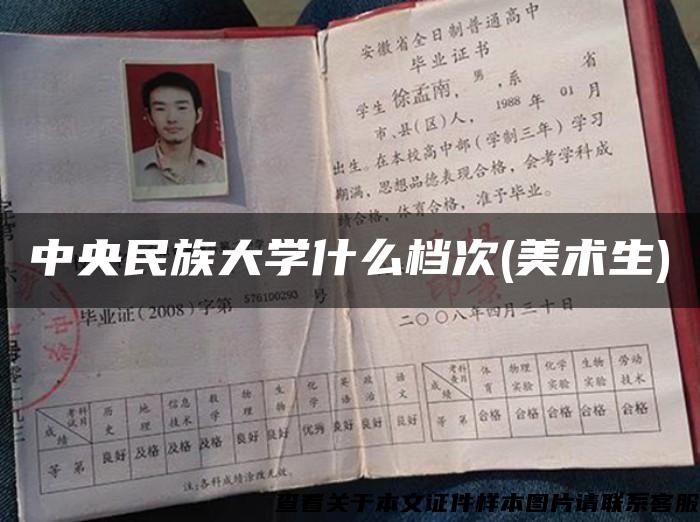 安徽省全日制普通高中
毕业证书
学生徐孟南，男，系 省
市、县(区)人，1988年01月
出生。在本校高中部（学制三年）学习
期满，思想品德表现合格，会考学科成
绩合格，体育合格，准予毕业。
中央民族大学什么档次(美术生)
毕业证(2008)字第 576100293 号
二〇〇八年四月三十日
成绩 考试科目 历史 地理 信息技术 数学 物理 生物 化学 英语 政治 语文
等第 良好 及格 及格 及格 良好 良好 优秀 良好 良好 良好
注:各科成绩涂改无效。
成绩 考查科目 体育 物理实验 化学实验 生物实验 劳动技术
等第 合格 合格 合格 合格 合格
查看关于本文证件样本图片请联系客服